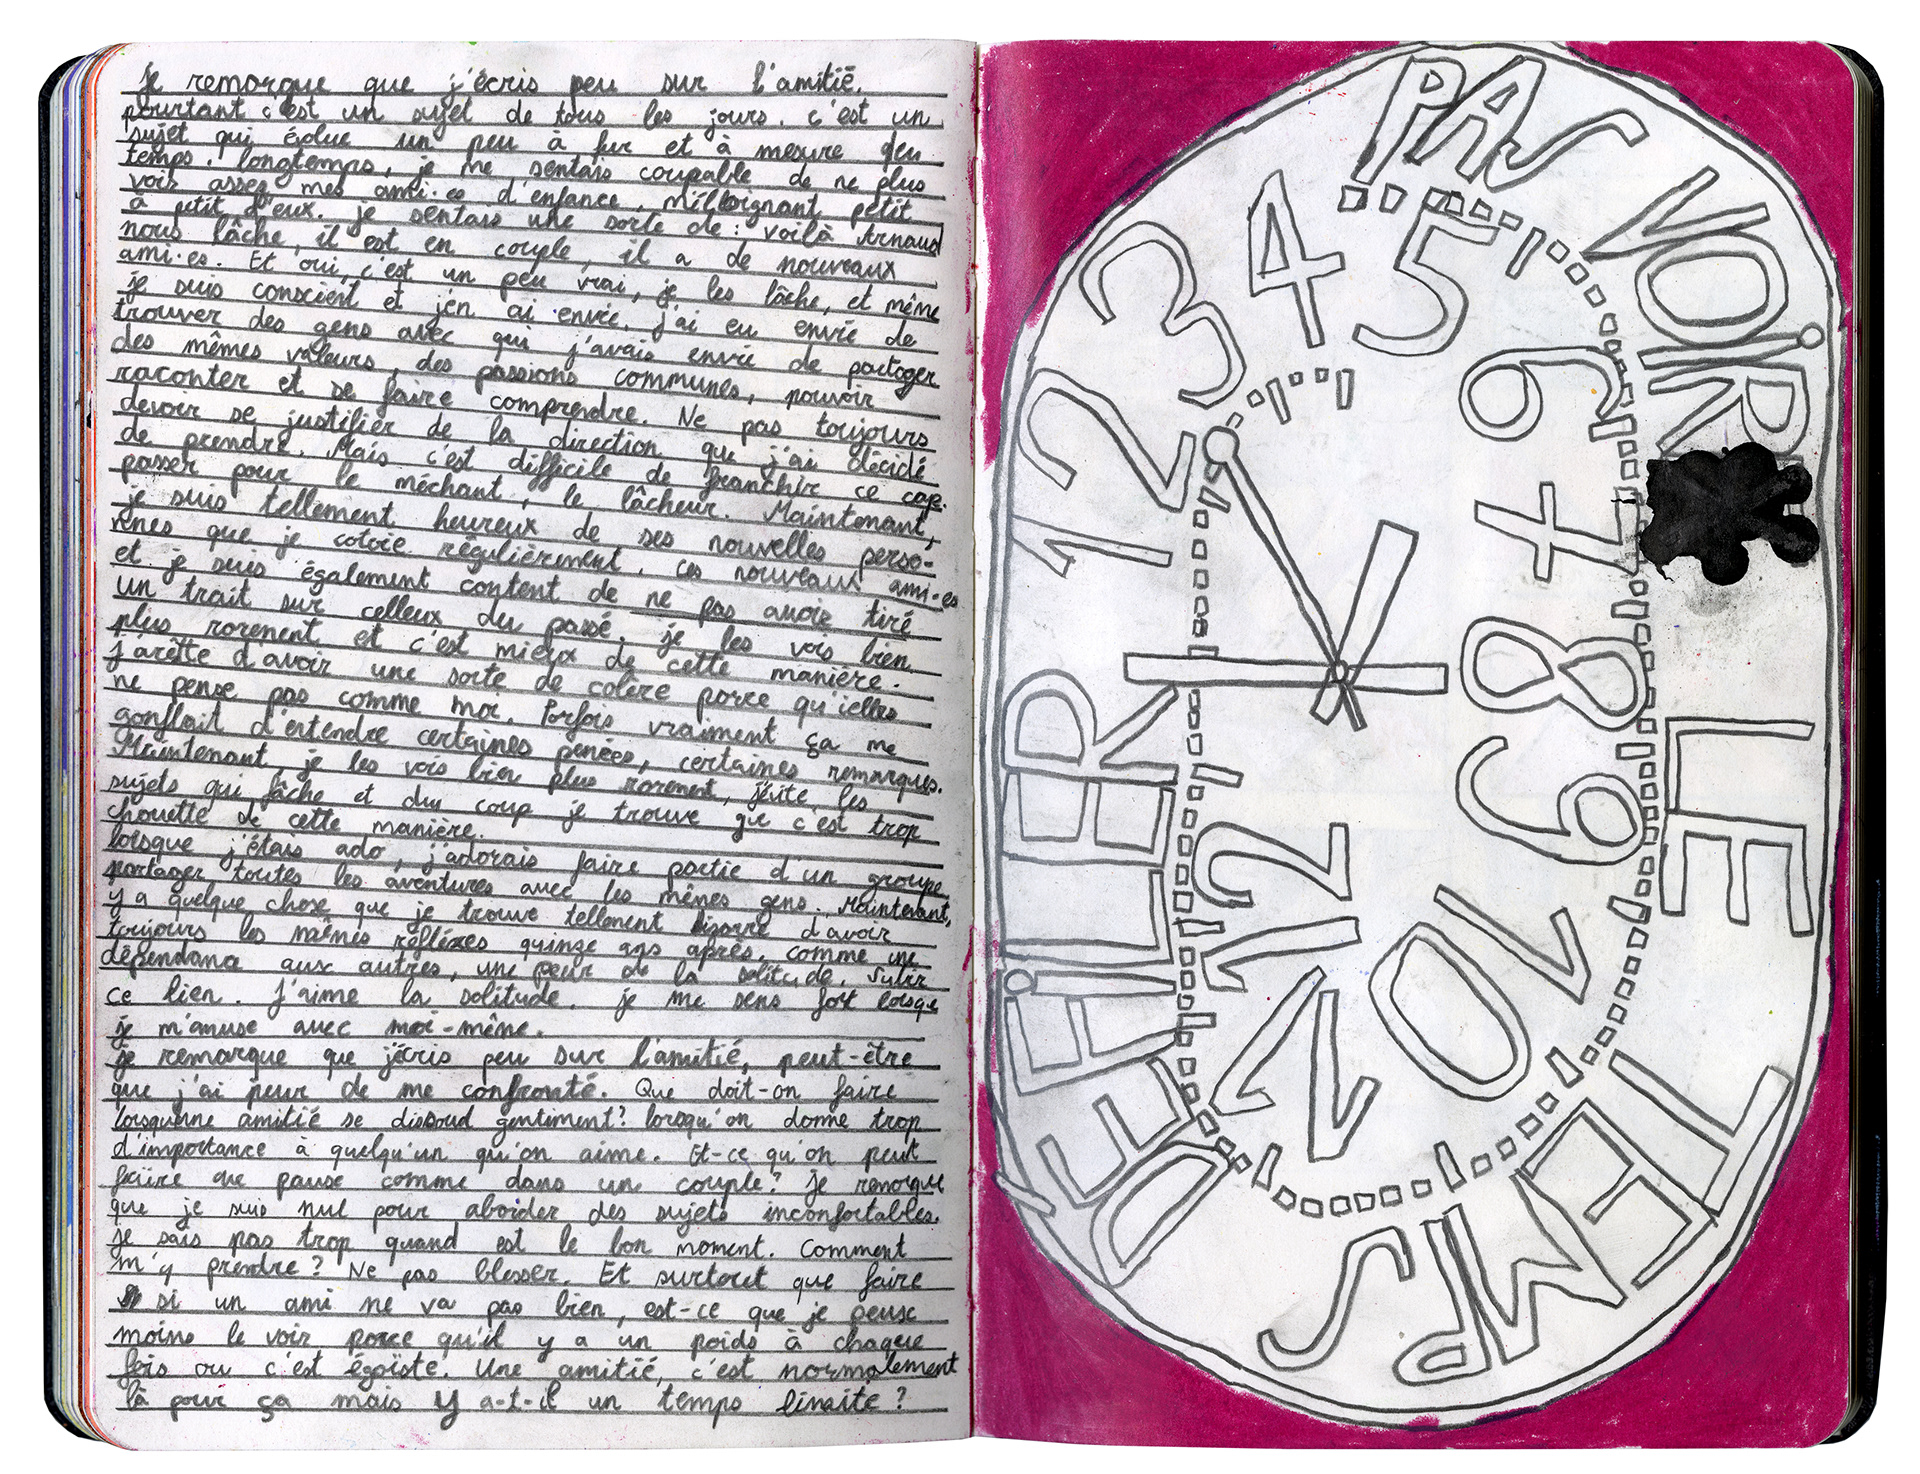 je remarque que j'écris peu sur l'amitié.
pourtant c'est un sujet de tous les jours. c'est un
sujet qui évolue un peu à fur et à mesure du
temps. longtemps, je me sentais coupable de ne plus
voir assez mes ami·es d'enfance, m'éloignant petit
à petit d'eux. je sentais une sorte de : voilà Arnaud
nous lâche, il est en couple, il a de nouveaux
ami·es. Et oui, c'est un peu vrai, je les lâche, et même
je suis conscient et j'en ai envie. j'ai eu envie de
trouver des gens avec qui j'avais envie de partager
des mêmes valeurs, des passions communes, pouvoir
raconter et se faire comprendre. Ne pas toujours
devoir se justifier de la direction que j'ai décidé
de prendre. Mais c'est difficile de franchir ce cap.
passer pour le méchant, le lâcheur. Maintenant,
je suis tellement heureux de ses nouvelles perso-
nnes que je cotoie régulièrement. ces nouveaux ami·es
et je suis également content de ne pas avoir tiré
un trait sur celleux du passé. je les vois bien
plus rarement et c'est mieux de cette manière.
j'arête d'avoir une sorte de colère parce qu'ielles
ne pense pas comme moi. Parfois vraiment ça me
gonflait d'entendre certaines pensées, certaines remarques.
Maintenant, je les vois bien plus rarement, j'évite les
sujets qui fâche et du coup je trouve que c'est trop
chouette de cette manière.
lorsque j'étais ado, j'adorais faire partie d'un groupe
partager toutes les aventures avec les mêmes gens. Maintenant,
y a quelque chose que je trouve tellement bizarre d'avoir
toujours les mêmes réfléxes quinze ans après, comme une
dépendance aux autres, une peur de la solitude. Subir
ce lien. J'aime la solitude. je me sens fort lorsque
je m'amuse avec moi-même.
je remarque que j'écris peu sur l'amitié, peut-être
que j'ai peur de me confronté. Que doit-on faire
lorsqu'une amitié se dissoud gentiment? lorsqu'on donne trop
d'importance à quelqu'un qu'on aime. Et-ce qu'on peut
faire une pause comme dans un couple? je remarque
que je suis nul pour aborder des sujets inconfortables.
je sais pas trop quand est le bon moment. Comment
m'y prendre? Ne pas blesser. Et surtout que faire
si un ami ne va pas bien, est-ce que je peux
moins le voir parce qu'il y a un poids à chaque
fois ou c'est égoïste. Une amitié, c'est normalement
là pour ça mais y a-t-il un temps limite?
PAS VOIR
LE
TEMPS
DÉFILER
1 2 3 4 5 6 7 8 9 10 11 12